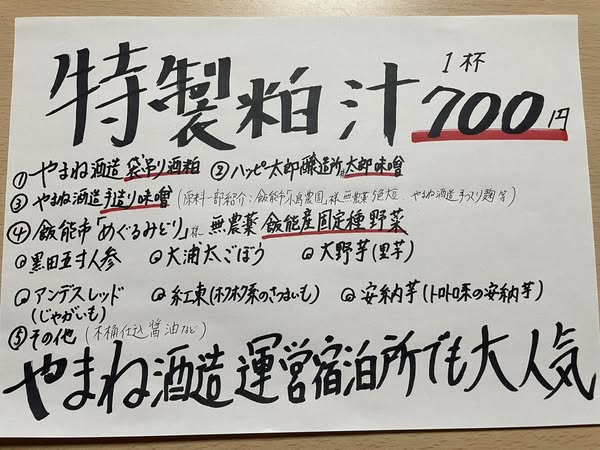 特製粕汁 1杯 700円
① やまね酒造 袋吊り酒粕 ② ハッピー太郎醸造所 太郎味噌
③ やまね酒造手造り味噌 (原料一部紹介:飯能市「小島農園」様 無農薬 やまね酒造手づくり麹 等)
④ 飯能市「めぐるみどり」様 無農薬 飯能産固定種野菜
◎黒田五寸人参 ◎大浦太ごぼう ◎大野芋(里芋)
◎アンデスレッド ◎紅東(ホクホク系のさつまいも) ◎安納芋(トロトロ系の安納芋)
(じゃがいも)
⑤ その他 (木桶仕込醤油など)
やまね酒造 運営宿泊所でも大人気